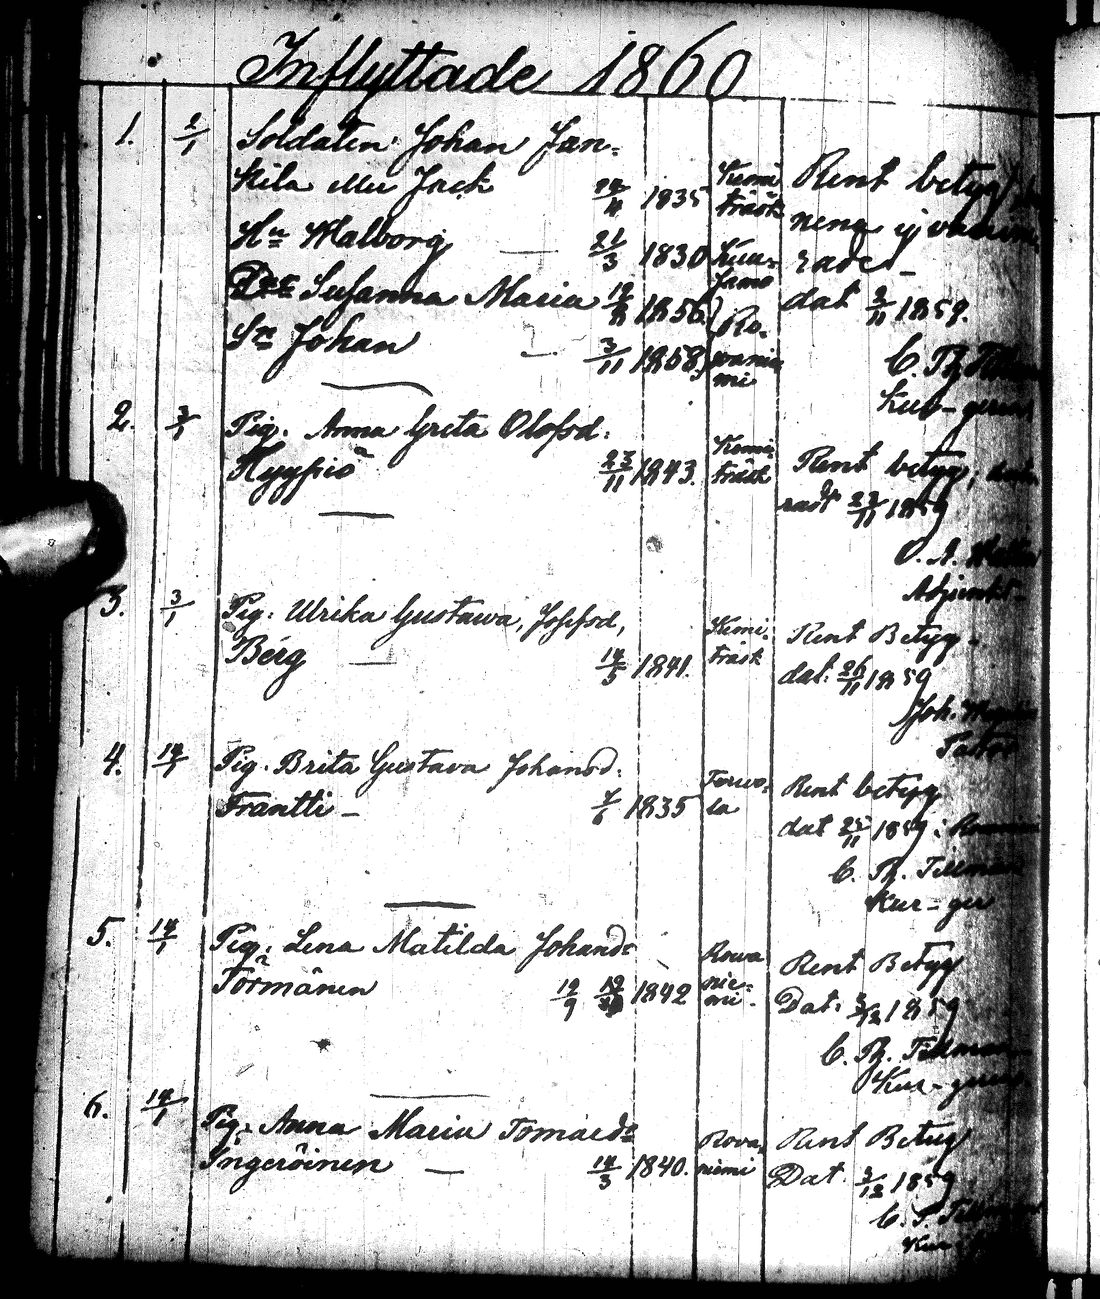 Inflyttade 1860
1. 2/1 Soldaten Johan Jan=
kila eller Jack 1835 Kemi träsk Rent betyg
Hu Walborg 21/3 1830 Kuu= samo
Dtr Susanna Maria 1856 Ro= waniemi dat 2/11 1859.
Sn Johan 3/11 1858 C. Th.
2. 3/1 Pig. Anna Greta Olofsd.
Hyypiö 23/11 1843. Kemi träsk Rent betyg,
23/11 1859
O. A.
Adjunkt
3. 3/1 Pig. Ulrika Gustawa, Josefsd,
Berg 14/5 1841. Kemi träsk Rent Betyg
dat. 26/11 1859
Joh.
4. 14/1 Pig. Brita Gustava Johansd.
Frantti 7/6 1835 Torwo= la Rent betyg
dat 25/11 1859 i
C. Th. Tillman
Kur-ger
5. 14/1 Pig. Lena Matilda Johansd=
Törmänen 12/9 1842 Rowa nie= mi. Rent Betyg
Dat. 3/12 1859
C. Th. Tillman
Kur-
6. 14/1 Pig. Anna Maria Tomasd=
Ingeröinen 14/3 1840. Rova, niemi Rent Betyg
Dat. 3/12 1859